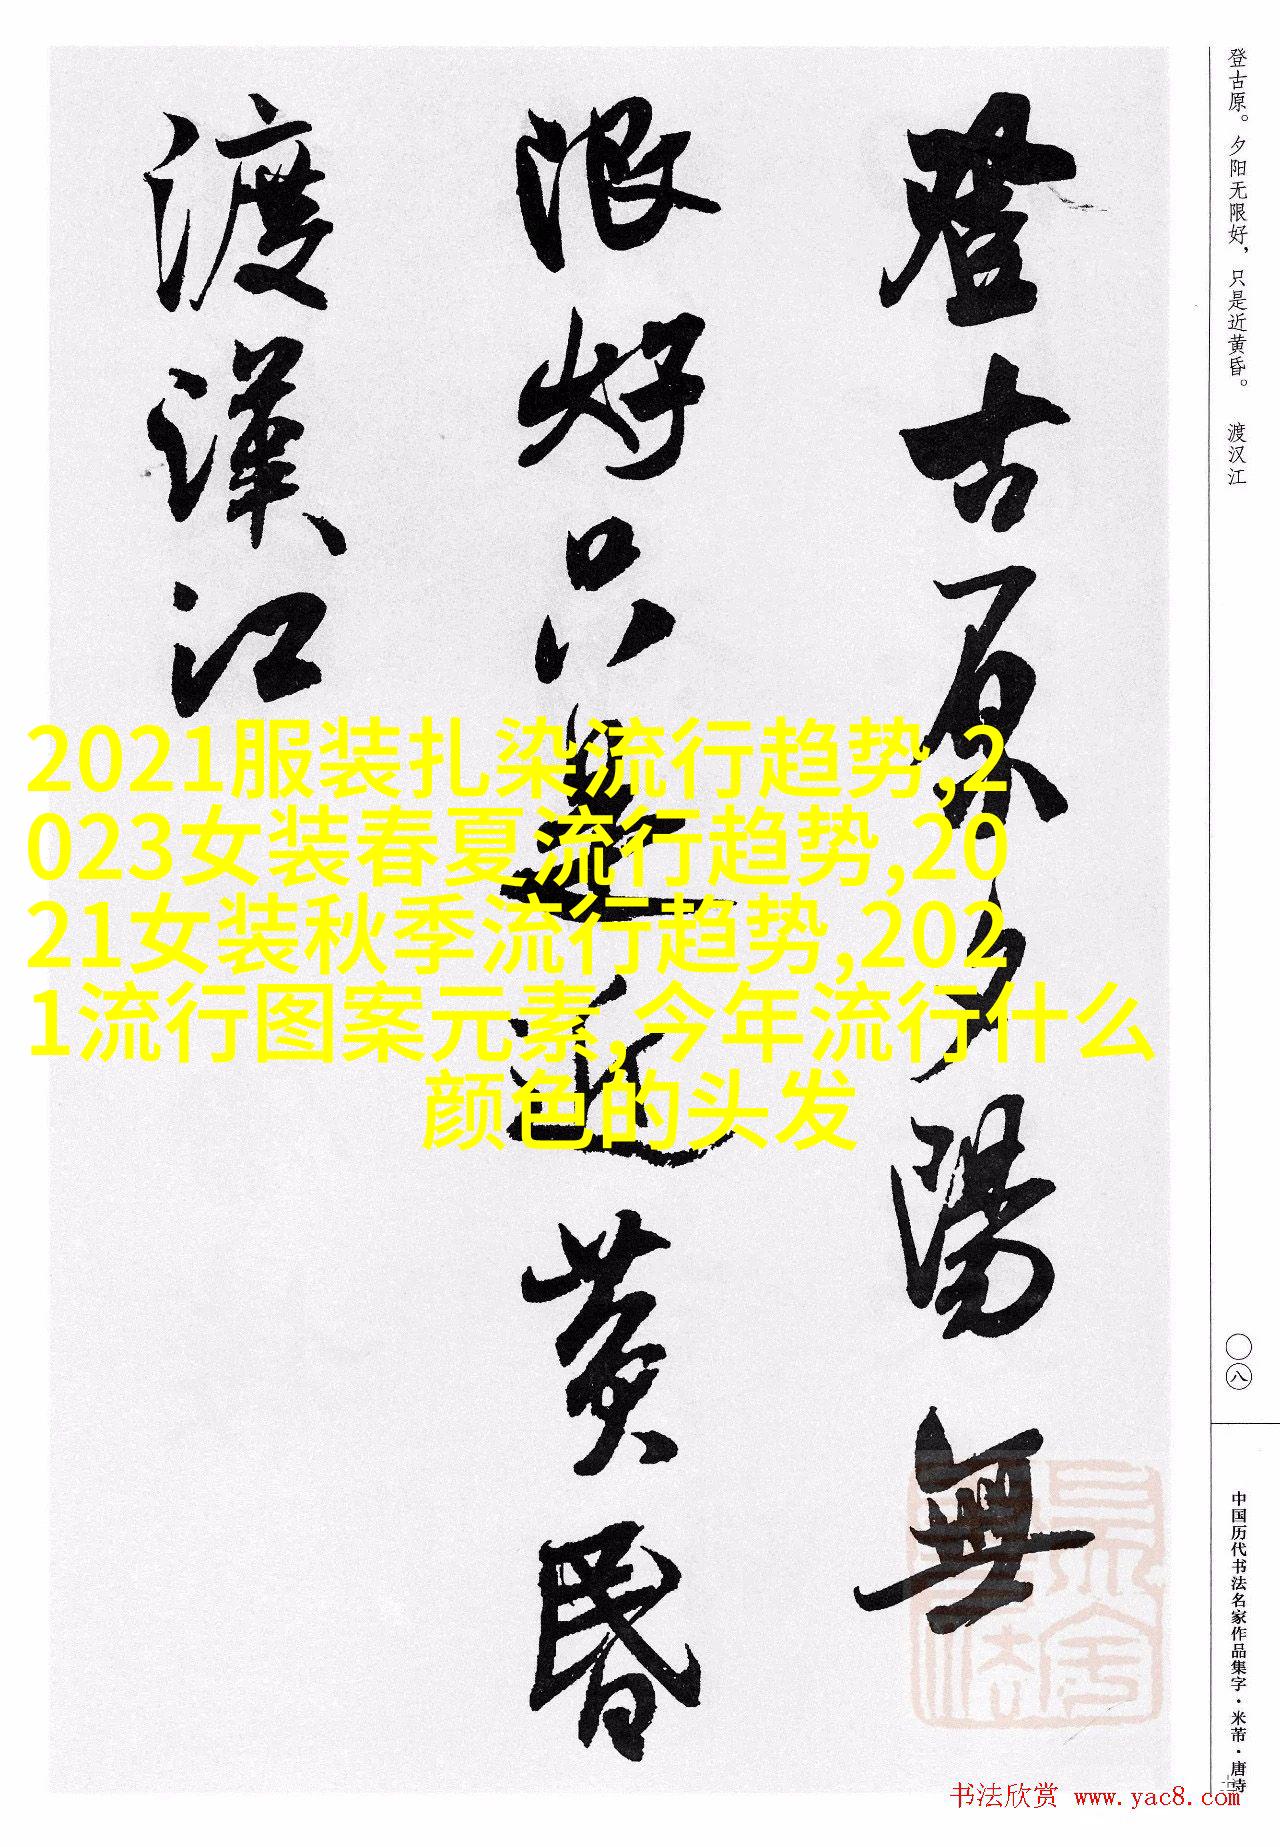 登古原夕陽無
限好只是近黄昏
渡漢江
登古原。夕阳无限好，只是近黄昏。 渡汉江
〇八
中国历代书法名家作品集字·米芾·唐诗
2021服装扎染流行趋势,2
023女装春夏流行趋势,20
21女装秋季流行趋势,202
1流行图案元素,今年流行什么
颜色的头发
书法欣赏 www.yac8.com